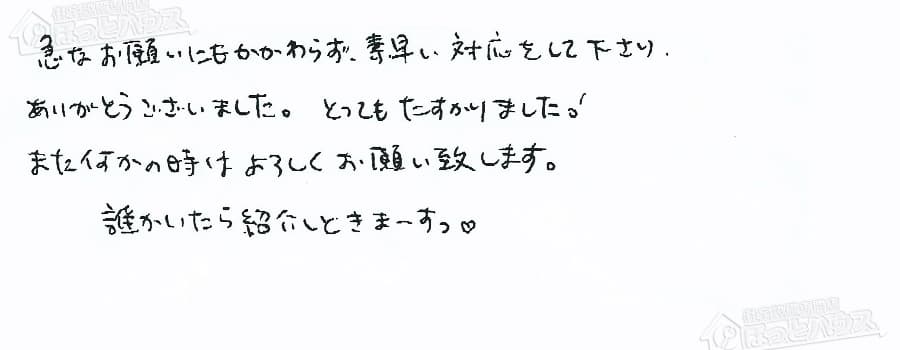 急なお願いにもかかわらず、素早い対応をして下さり、
ありがとうございました。とってもたすかりました♪
また何かの時はよろしくお願い致します。
誰かいたら紹介しときまーすっ♡
住宅設備専門店
ほっとハウス
住宅設備専門店
ほっとハウス